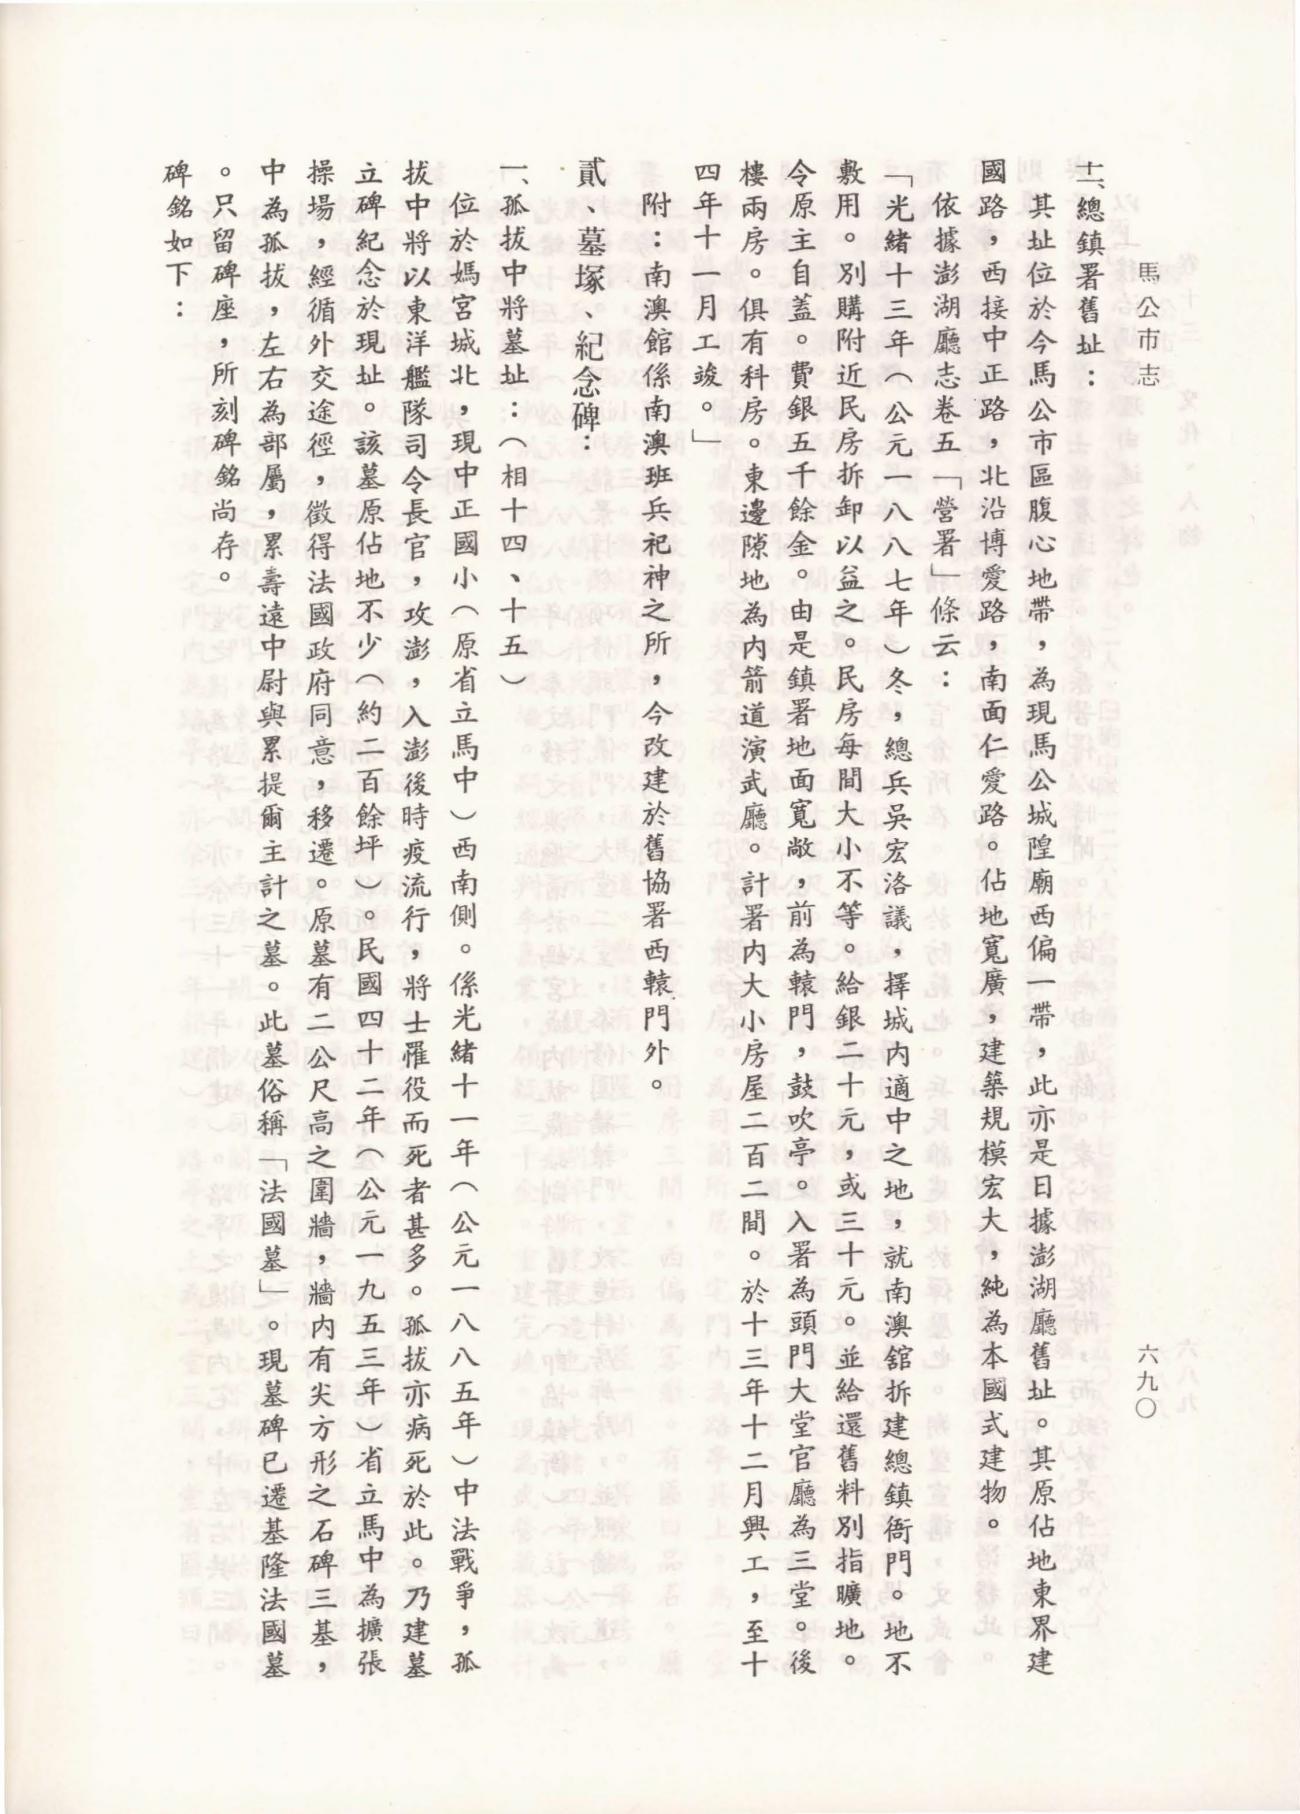 馬公市志
六九〇
十二、總鎮署舊址：
其址位於今馬公市區腹心地帶，為現馬公城隍廟西偏一帶，此亦是日據澎湖廳舊址。其原佔地東界建
國路，西接中正路，北沿博愛路，南面仁愛路。佔地寬廣，建築規模宏大，純為本國式建物。
依據澎湖廳志卷五「營署」條云：
「光緒十三年（公元一八八七年）冬，總兵吳宏洛議，擇城內適中之地，就南澳舘折建總鎮衙門。地不
敷用。別購附近民房拆卸以益之。民房每間大小不等。給銀二十元，或三十元。並給還舊料別指曠地。
令原主自蓋。費銀五千餘金。由是鎮署地面寬敞，前為轅門，鼓吹亭。入署為頭門大堂官廳為三堂。後
樓兩房。俱有科房。東邊隙地為內箭道演武廳。計署內大小房屋二百二間。於十三年十二月興工，至十
四年十一月工竣。」
附：南澳館係南澳班兵祀神之所，今改建於舊協署西轅門外。
貳、墓塚、紀念碑：
一、孤拔中將墓址：（相十四、十五）
位於媽宮城北，現中正國小（原省立馬中）西南側。係光緒十一年（公元一八八五年）中法戰爭，孤
拔中將以東洋艦隊司令長官，攻澎，入澎後時疫流行，將士罹役而死者甚多。孤拔亦病死於此。乃建墓
立碑紀念於現址。該墓原佔地不少（約二百餘坪）。民國四十二年（公元一九五三年）省立馬中為擴張
操場，經循外交途徑，徵得法國政府同意，移遷。原墓有二公尺高之圍牆，牆內有尖方形之石碑三基，
中為孤拔，左右為部屬，累壽遠中尉與累提爾主計之墓。此墓俗稱「法國墓」。現墓碑已遷基隆法國墓
。只留碑座，所刻碑銘尚存。
碑銘如下：